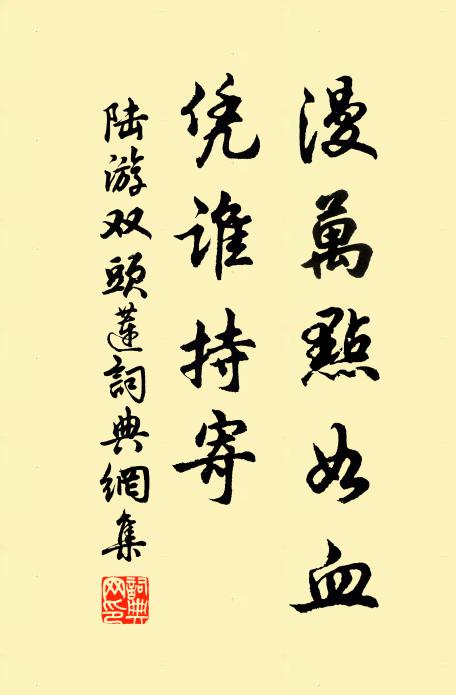 漫萬點如血
凭谁持寄
陆游双頭蓮詞典網集
詞典网印